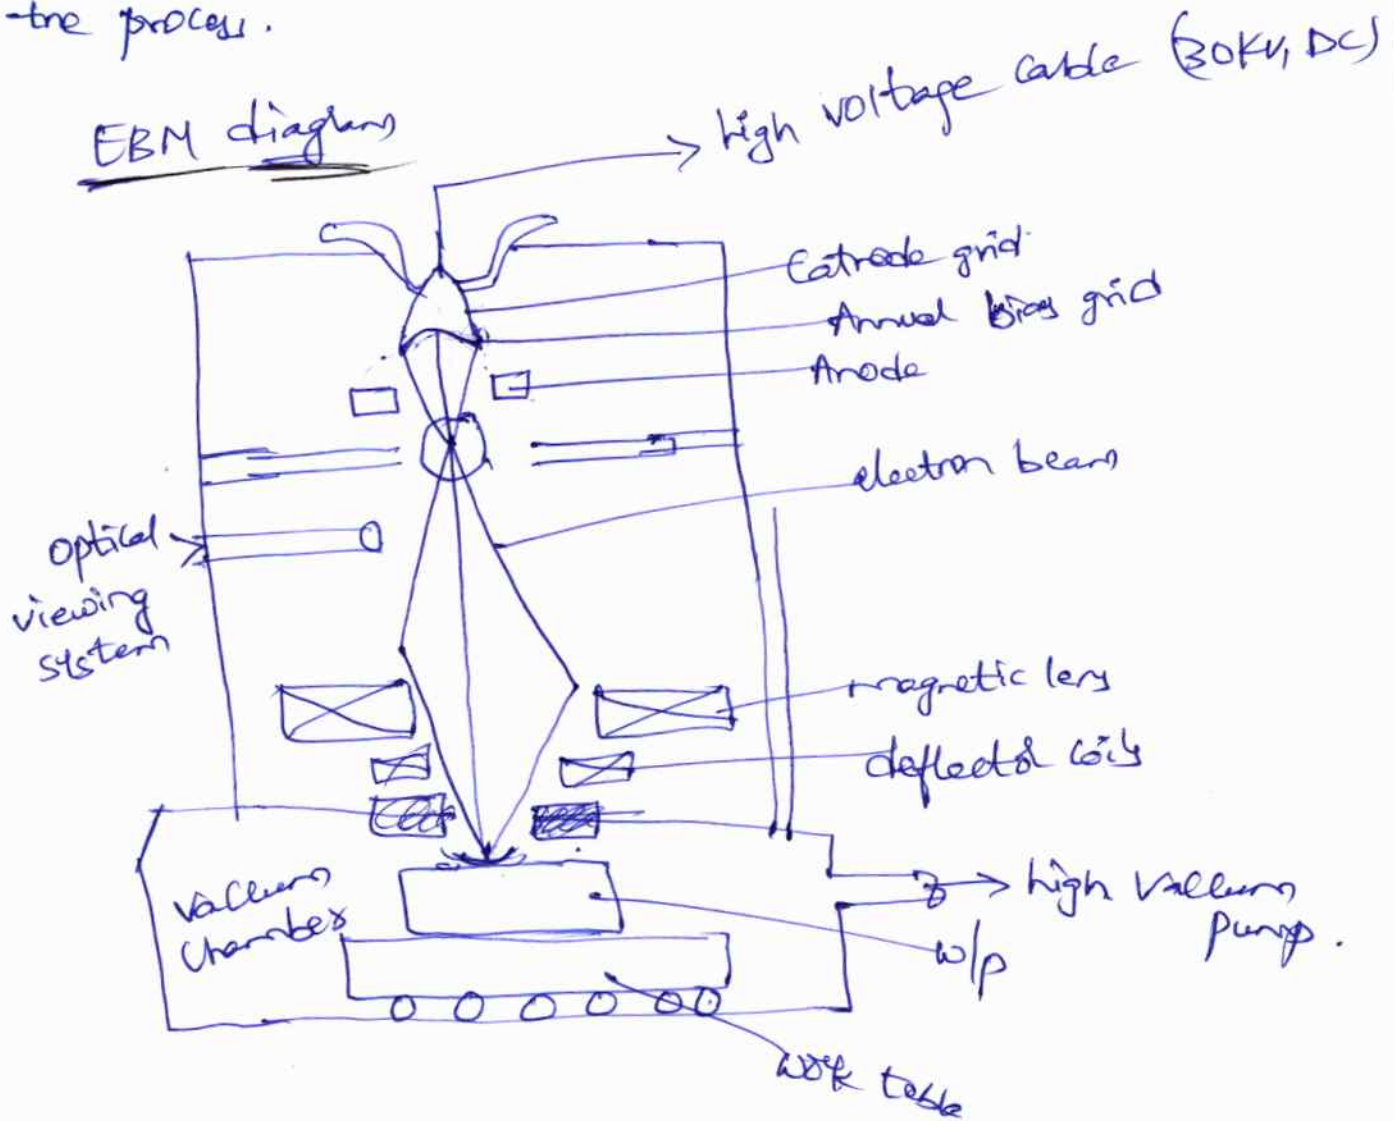 the process.
EBM diagram
high voltage cable (30KV, DC)
Catrode grid
Annual bias grid
Anode
electron beam
optical
viewing
system
magnetic lens
deflector coils
vaccum
chamber
high vaccum
pump.
w/p
work table